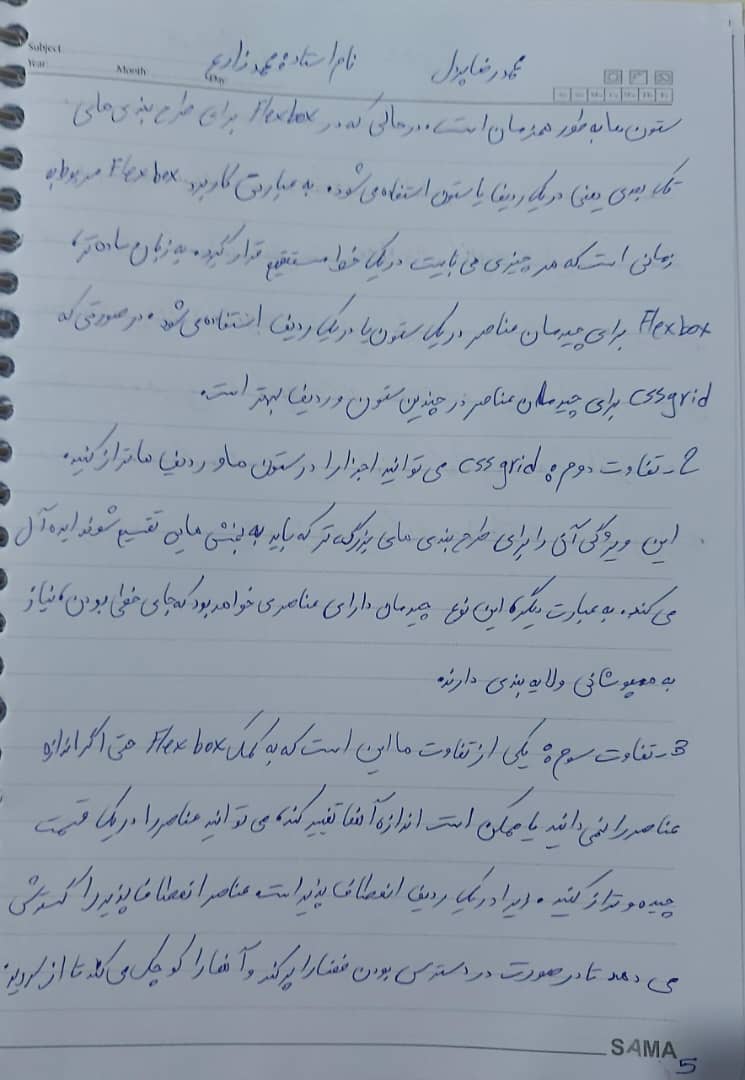 Subject
Year Month Day
محمدرضا پردل نام استاد: محمد زارع
ستون ها به طور همزمان است. در حالی که در Flexbox برای طرح بندی های
تک بعدی یعنی در یک ردیف یا ستون استفاده می شود. به عبارتی کاربرد Flexbox مربوط به
زمانی است که هر چیزی می بایست در یک خط مستقیم قرار گیرد. به زبان ساده تر،
Flexbox برای چیدمان عناصر در یک ستون یا در یک ردیف استفاده می شود. در صورتی که
cssgrid برای چیدمان عناصر در چندین ستون و ردیف بهتر است.
2- تفاوت دوم: css grid می توانید اجزا را در ستون ها و ردیف ها تراز کنید.
این ویژگی آن را برای طرح بندی های بزرگ تر که باید به بخش هایی تقسیم شوند ایده آل
می کند. به عبارت دیگر، این نوع چیدمان دارای عناصری خواهد بود که جای خطی بودن، نیاز
به همپوشانی و لایه بندی دارند.
3- تفاوت سوم: یکی از تفاوت ها این است که به کمک Flexbox حتی اگر اندازه
عناصر را نمی دانید یا ممکن است اندازه آنها تغییر کند، می توانید عناصر را در یک قسمت
چیده و تراز کنید. زیرا در یک ردیف انعطاف پذیر است. عناصر انعطاف پذیر را گسترش
می دهد تا در صورت در دسترس بودن فضا را پر کند و آنها را کوچک می کند تا از سرریز
SAMA
5